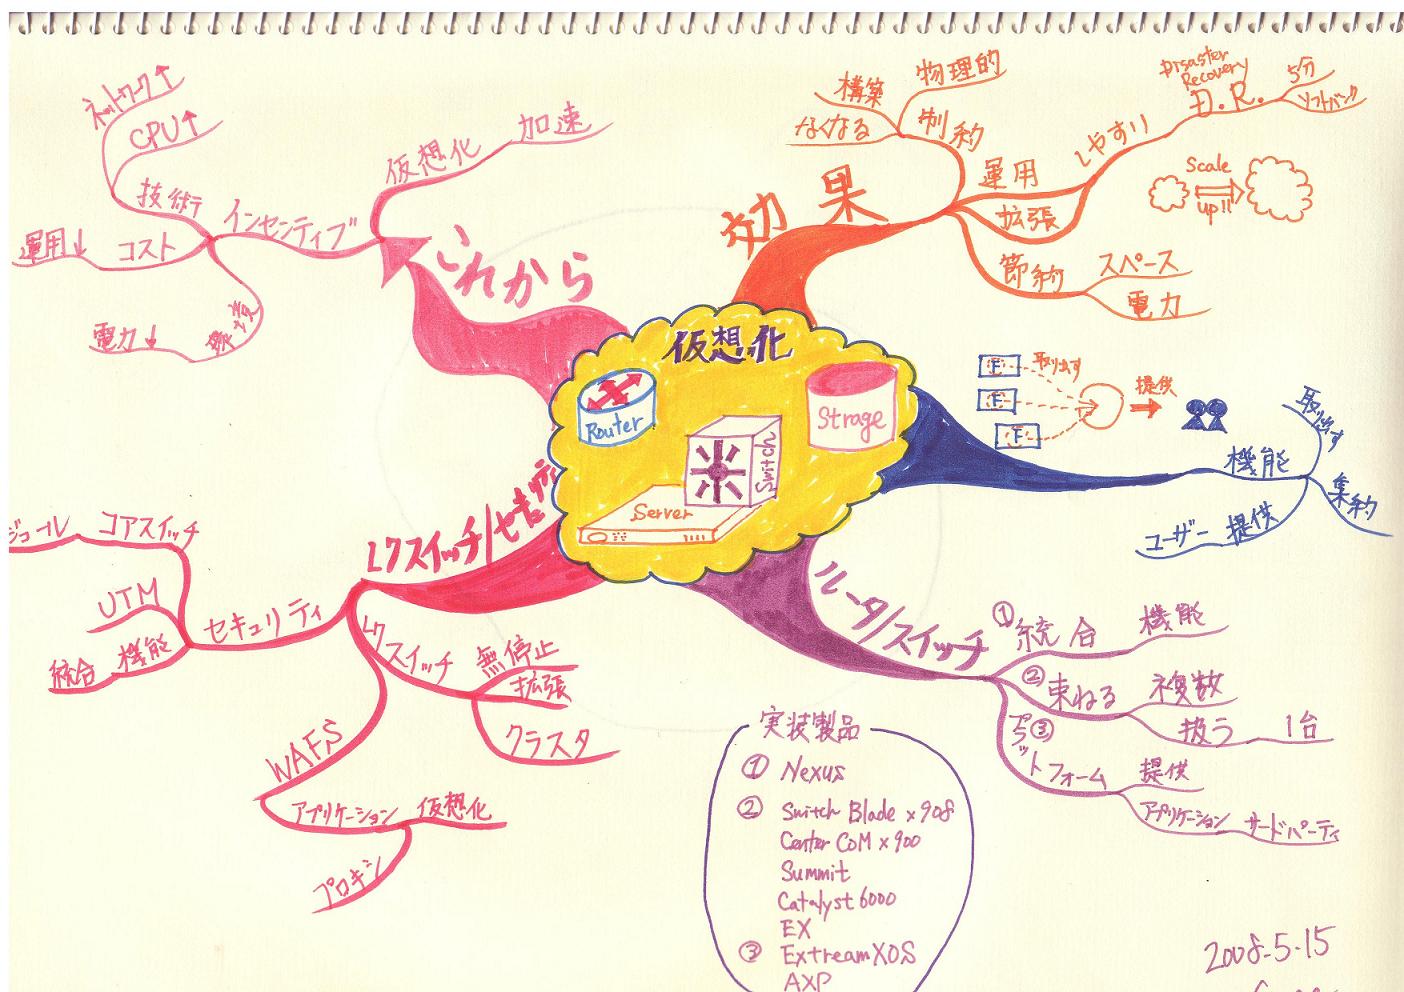 仮想化
Router
Strage
Switch
Server
効果
制約
物理的
構築
なくなる
運用
拡張
しやすい
Disaster
Recovery
D.R.
5分
ソフトバンク
Scale
up!!
節約
スペース
電力
F
F
F
取り出す
提供
機能
取り出す
集約
ユーザー 提供
ルータ/スイッチ
① 統合 機能
② 束ねる 複数
扱う 1台
③ プラットフォーム 提供
アプリケーション サードパーティ
実装製品
① Nexus
② Switch Blade x908
Center CoM x900
Summit
Catalyst 6000
EX
③ ExtreamXOS
AXP
L7スイッチ/セキュリティ
セキュリティ
コアスイッチ
ジュール
UTM
統合 機能
L7スイッチ
無停止
拡張
クラスタ
WAFS
アプリケーション 仮想化
プロキシ
これから
仮想化 加速
インセンティブ
技術
ネットワーク↑
CPU↑
コスト
運用↓
環境
電力↓
2008.5.15